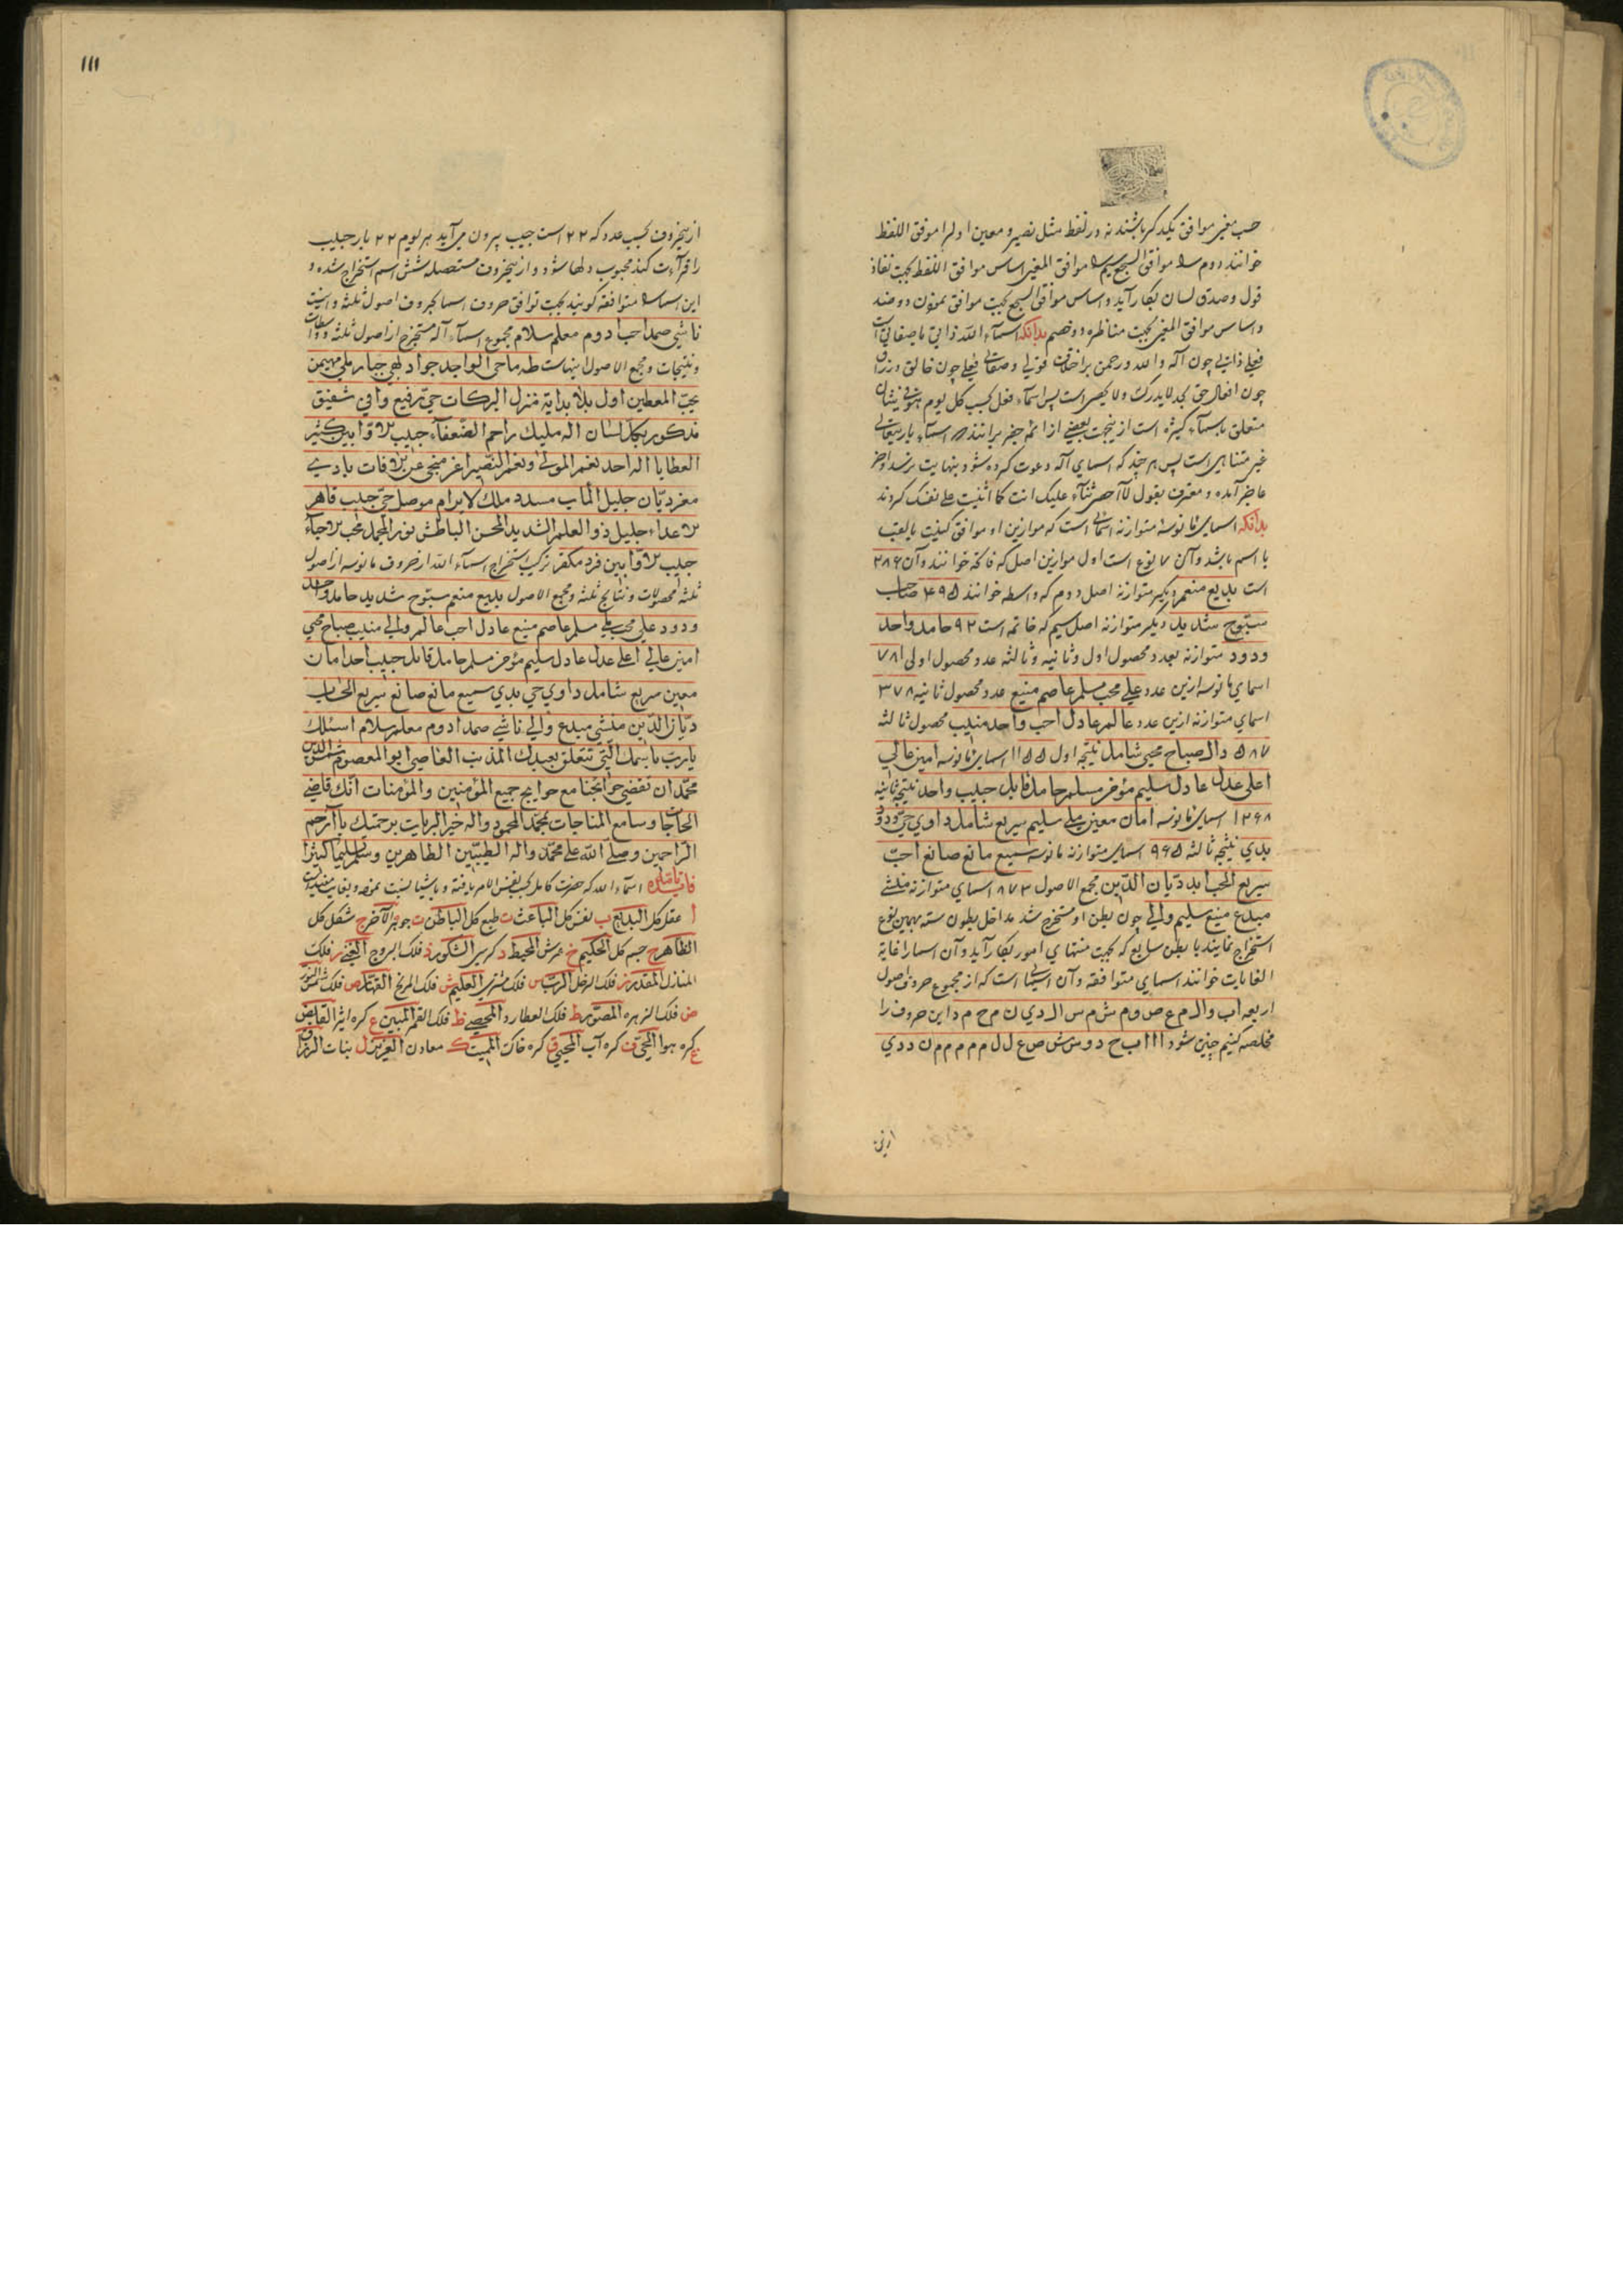 حسب معنی موافق یکدیگر باشند نه در لفظ مثل نصیر و معین اول را موافق اللفظ
خوانند دوم را موافق السجع سیم را موافق المعنی اساس موافق اللفظ بجهت نفاذ
قول و صدق لسان بکار آید و اساس موافق السجع بجهت موافق نمودن دو ضد
و اساس موافق المعنی بجهت مناظره دو خصم بدانکه اسمآء الله ذاتی یا صفاتی است
فعلی ذاتی چون اله و الله و رحمن بر اختلاف قولی و صفاتی فعلی چون خالق و رزاق
چون افعال حق بحد لا یدرک و لا یحصی است پس اسمآء فعل بحسب کل یوم هو فی شان
متعلق باسمآء کثیره است ازینجهت بعضی از ائمه جفر برانند که اسمآء باریتعالی
غیر متناهی است پس هر چند که اسمای اله دعوت کرده شود بنهایت نرسد و اخر
عاجز آمده و معترف بقول لا احصی ثنآء علیک انت کما اثنیت علی نفسک گردند
بدانکه اسمای مانوسه متوازنه اسمائی است که موازین او موافق کیفیت یا لقب
یا اسم باشد و آن ۷ نوع است اول موازین اصل که فاتحه خوانند و آن ۲۸۶
است بدیع منعم دیگر متوازنه اصل دوم که واسطه خوانند ۴۹۵ صاحب
سبّوح شدید دیگر متوازنه اصل سیم که خاتمه است ۹۲ حامد واحد
ودود متوازنه بعدد محصول اول و ثانیه و ثالثه عدد محصول اولی ۷۸۱
اسمای مانوسه ازین عدد علی محب مسلم عاصم منیع عدد محصول ثانیه ۳۷۸
اسمای متوازنه ازین عدد عالم عادل احب واحد منیب محصول ثالثه
۵۸۷ دال صباح محیی شامل نتیجه اول ۱۱۵۵ اسمای مانوسه امین عالی
اعلی عدل عادل سلیم مؤخر مسلم حامد قابل حبیب واحد نتیجه ثانیه
۱۲۶۸ اسمای مانوسه امان معین ملی سلیم سریع شامل داوی حیّ ودود
بدی نتیجه ثالثه ۹۶۵ اسمای متوازنه مانوسه سمیع مانع صانع احبّ
سریع الحساب دیّان الدّین مجمع الاصول ۸۷۳ اسمای متوازنه منشی
مبدع منیع سلیم والی چون بطن او مستخرج شد مداخل بطون سته بهمین نوع
استخراج نمایند با بطن سابع که بجهت منتهای امور بکار آید و آن اسما را غایة
الغایات خوانند اسمای متوافقه و آن اسمائی است که از مجموع حروف اصول
اربعه اب وال م ع ص وم ش م س ال دی ن م ح م د این حروف را
مخلصه کنیم چنین شود ا ا ا ا ب ح د و س ش ص ع ل ل م م م م م ن د د ی
ازین
۱۱۱
ازینحروف بحسب عدد که ۲۲ است حبیب بیرون می‌آید هر یوم ۲۲ بار حبیب
را قرآءت کند محبوب دلها شود و ازینحروف مستحصله شش اسم استخراج شده و
این اسما را متوافقه گویند بجهت توافق حروف اسما بحروف اصول ثلثه و اینست
ناشی صمد احب ادوم معلم سلام مجموع اسمآء اله مستخرج از اصول ثلثه و واسطات
و نتیجات و مجمع الاصول اینهاست طه ماحی الواجد جواد بهی جبار ملی مهیمن
یحبّ المعطین اول بلا بدایة منزل البرکات حیّ رفیع وافی شفیق
مذکور بکل لسان اله ملیک راحم الضّعفآء حبیب لاوّابین کثیر
العطایا اله احد نعم المولی و نعم النّصیر اغر منجی عن لآفات بادی
مغر دیّان جلیل المآب مسدد ملک لایرام موصل حیّ حبیب قاهر
لاعداء جلیل ذو العلم الشدید المحسن الباطش نور المجمل محب لارجآء
حبیب لاوّابین فرد مکفر ترکیب استخراج اسمآء الله از حروف مانوسه از اصول
ثلثه محصولات و نتایج ثلثه و مجمع الاصول بدیع منعم سبّوح شدید حامد واحد
ودود علی محب ملی مسلم عاصم منیع عادل احب عالم والی منیب صباح محیی
امین عالی اعلی عدل عادل سلیم مؤخر مسلم حامد قابل حبیب احد امان
معین سریع شامل داوی حی بدی سمیع مانع صانع سریع الحساب
دیّان الدّین منشی مبدع والی ناشی صمد ادوم معلم سلام اسئلک
یا ربّ باسمک الّتی تتعلق بعبدک المذنب العاصی ابو المعصوم شمس الدین
محمّد ان تقضی حوائجنا مع حوایج جمیع المؤمنین والمؤمنات انّک قاضی
الحاجات و سامع المناجات بمحمّد المحمود واله خیر البریات برحمتک یا ارحم
الرّاحمین وصلّی اللّه علی محمّد واله الطیّبین الطاهرین وسلم تسلیما کثیرا
فایده اسمآء الله که حضرت کامل بحسب نفس الامر یافته و باشیا نسبت نموده و بغایت مفید است
ا عقل کل البدیع ب نفس کل الباعث ت طبع کل الباطن ث جوهر الآخر ج شکل کل
الظاهر ح جسم کل الحکیم خ عرش المحیط د کرسی الشکور ذ فلک البروج الغنی ر فلک
المنازل المقدر ز فلک الزحل الرّب س فلک مشتری العلیم ش فلک المریخ القهّار ص فلک شمس النور
ض فلک الزهره المصوّر ط فلک العطارد المحصی ظ فلک القمر المبین ع کره اثیر القابض
غ کره هوا الحیّ ف کره آب المحیی ق کره خاک الممیت ک معادن العزیز ل نبات الرزاق